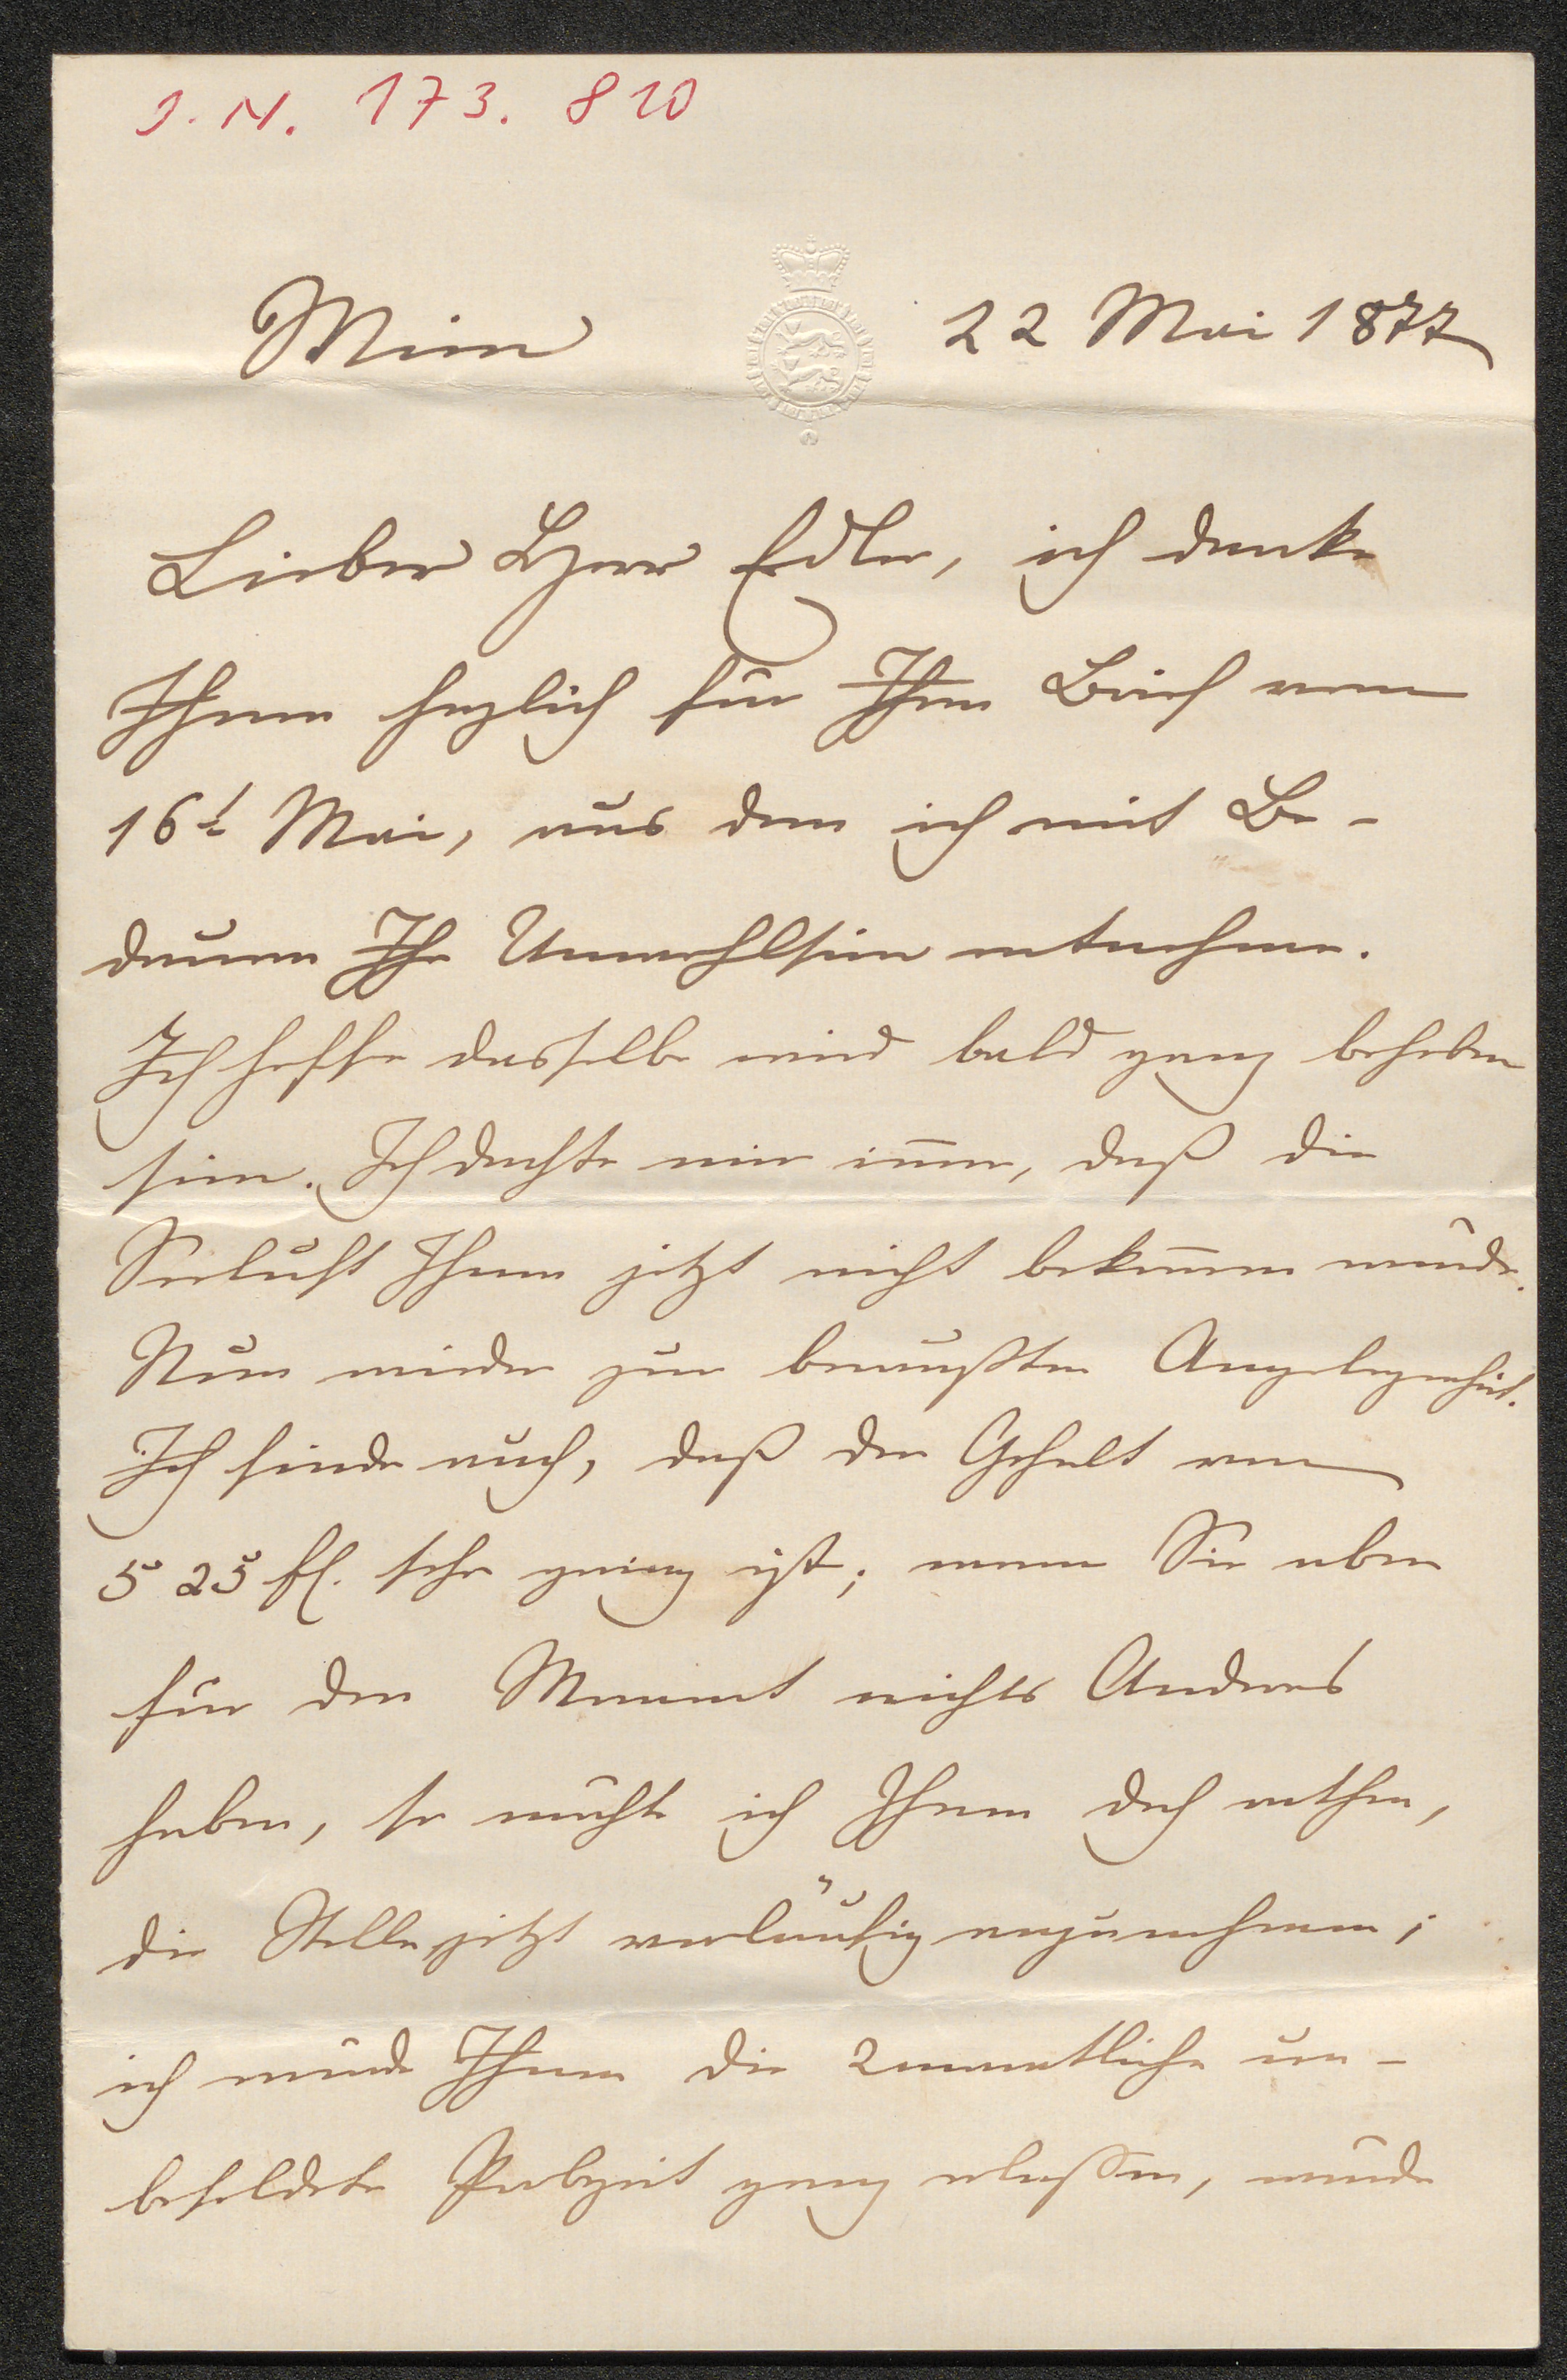 I. N. 173.810
Wien 22 Mai 1877
Lieber Herr Edler, ich danke
Ihnen herzlich für Ihren Brief vom
16t Mai, aus dem ich mit Be-
dauern Ihr Unwohlsein entnehme.
Ich hoffe dasselbe wird bald ganz behoben
sein. Ich dachte mir im̄er, daß die
Seeluft Ihnen jetzt nicht bekom̄en würde.
Nun wieder zur bewußten Angelegenheit.
Ich finde auch, daß der Gehalt von
525 fl. sehr gering ist; wenn Sie aber
für den Moment nichts Anderes
haben, so möchte ich Ihnen doch rathen,
die Stelle jetzt vorläufig anzunehmen;
ich würde Ihnen die 2monatliche un-
besoldete Probezeit ganz erlassen, würde